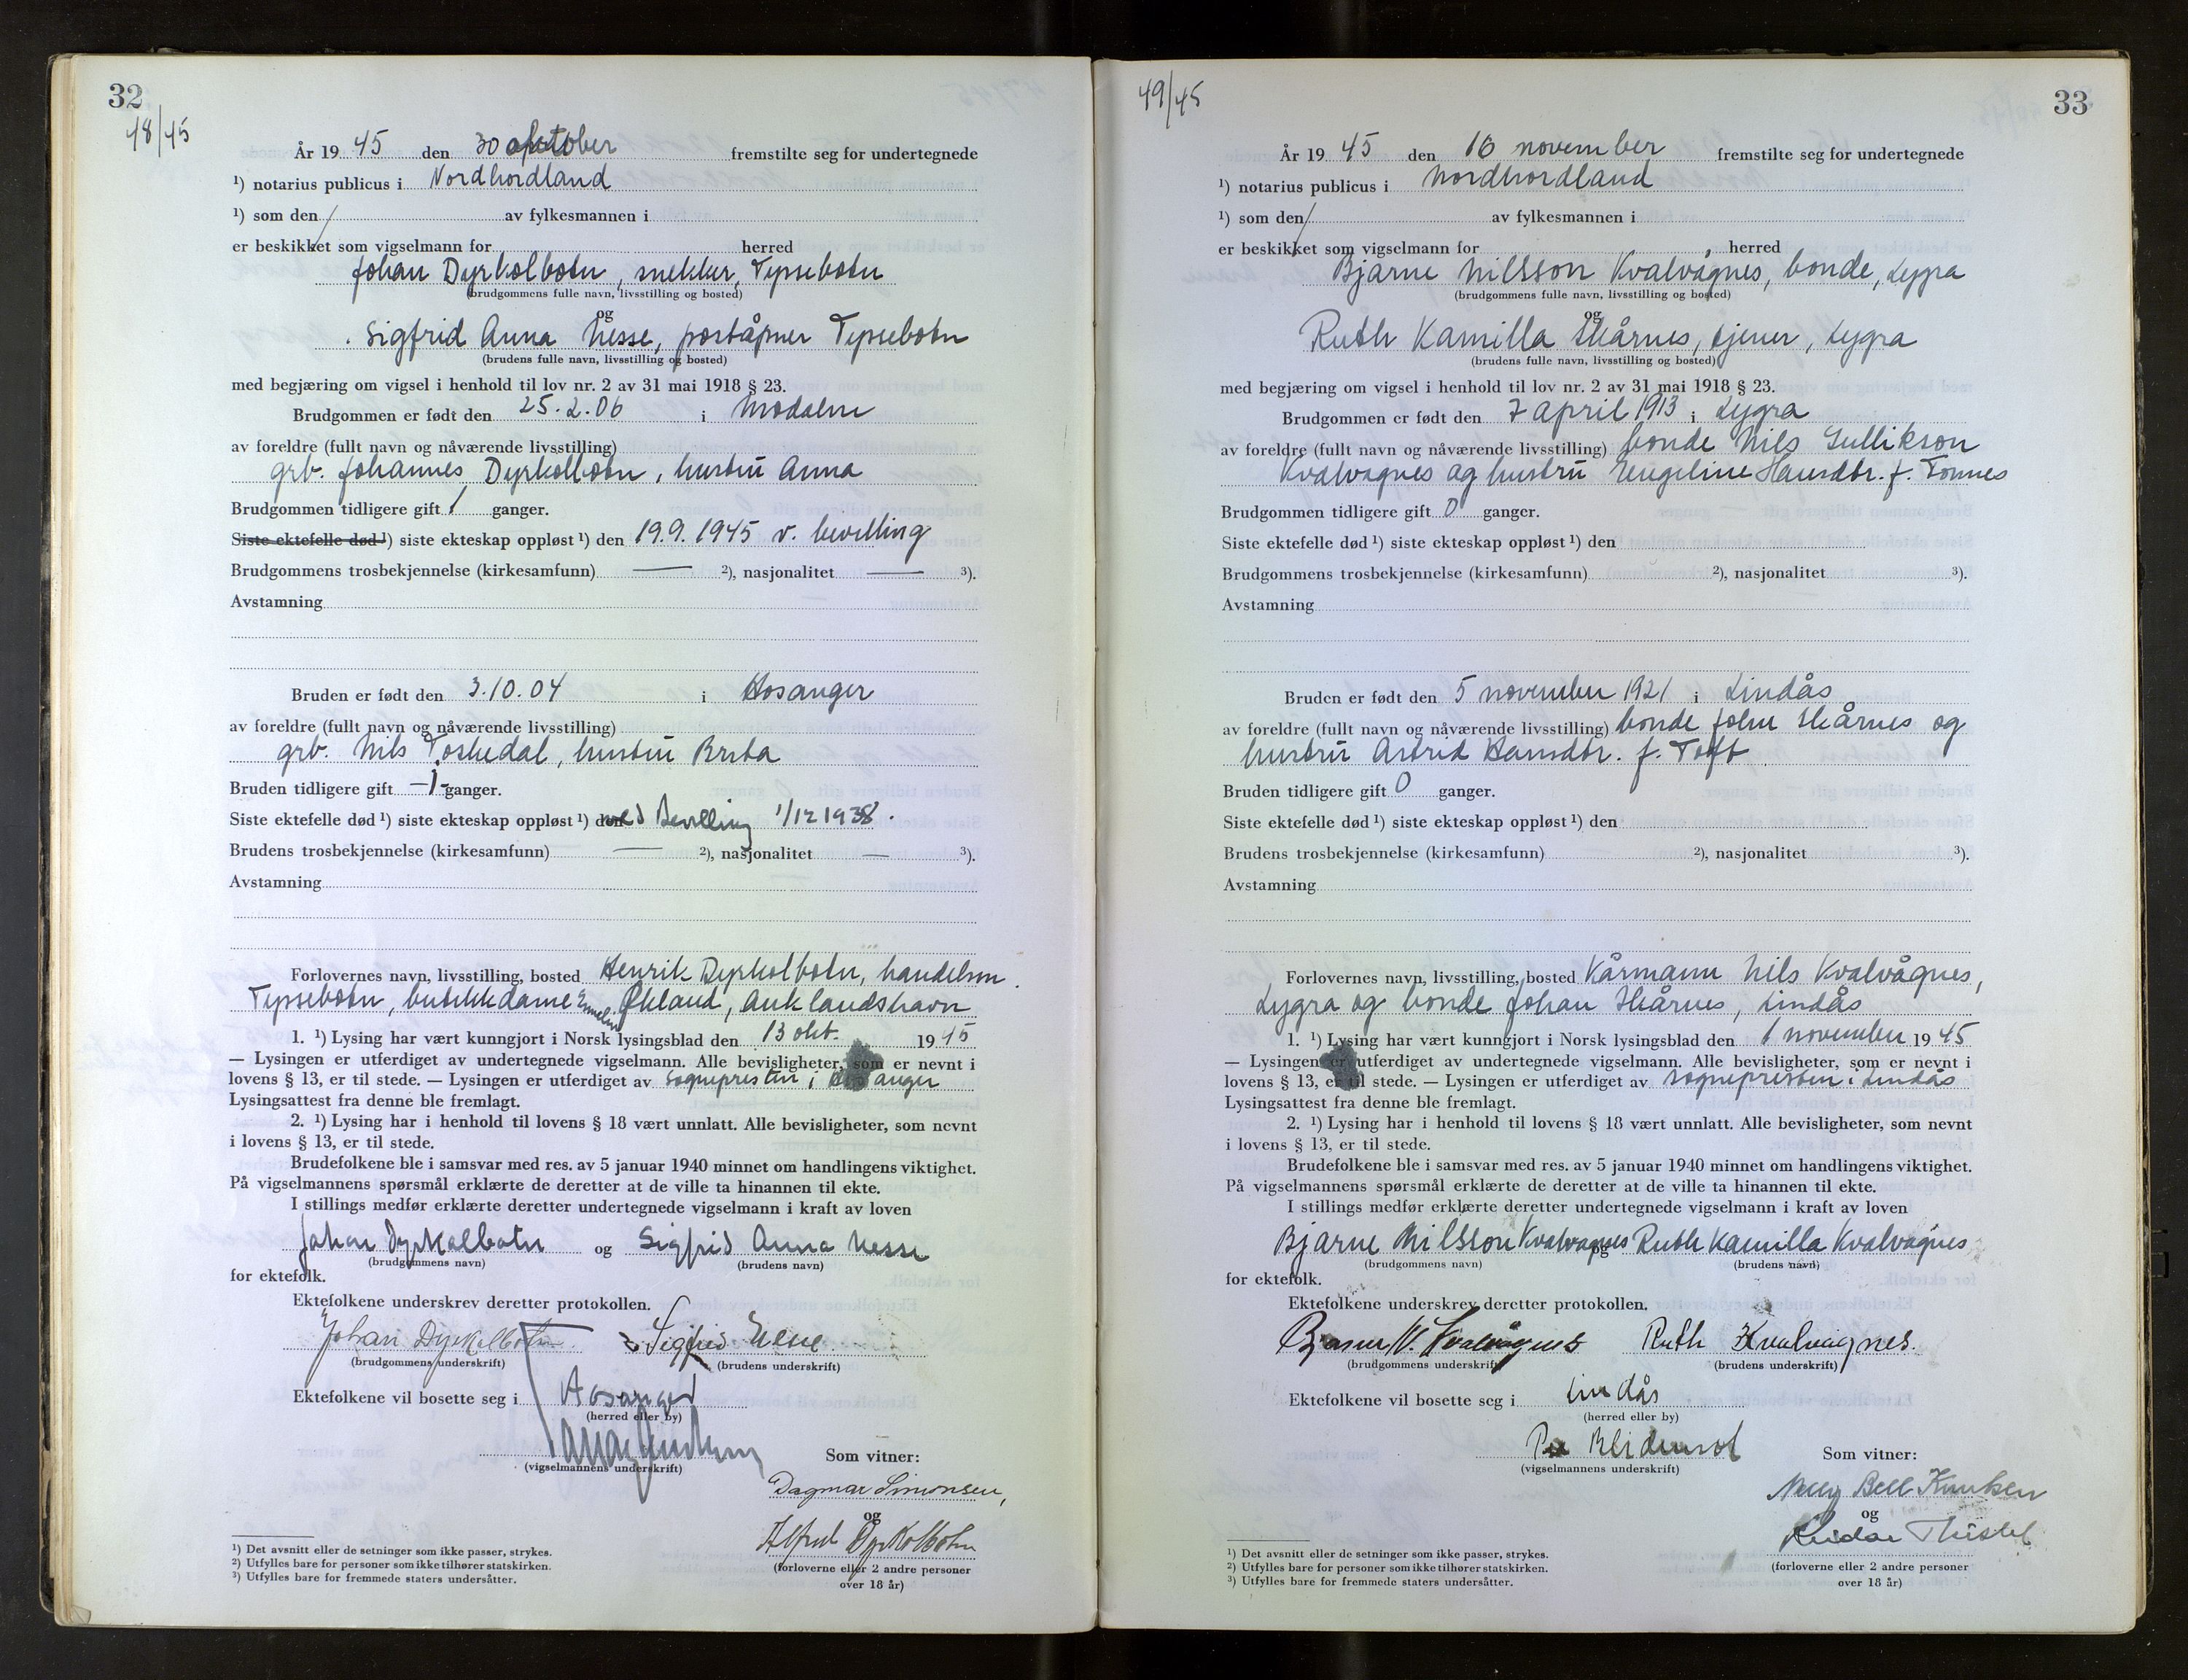 32
48/45
År 19 45 den 30 oktober fremstilte seg for undertegnede
¹) notarius publicus i Nordhordland
¹) som den / av fylkesmannen i
er beskikket som vigselmann for herred
Johan Dyrkolbotn, snekker, Typsebotn
(brudgommens fulle navn, livsstilling og bosted)
og
Sigfrid Anna Nesse, poståpner Typsebotn
(brudens fulle navn, livsstilling og bosted)
med begjæring om vigsel i henhold til lov nr. 2 av 31 mai 1918 § 23.
Brudgommen er født den 25.2.06 i Modalen
av foreldre (fullt navn og nåværende livsstilling)
grb. Johannes Dyrkolbotn, hustru Anna
Brudgommen tidligere gift 1 ganger.
Siste ektefelle død ¹) siste ekteskap oppløst ¹) den 19.9.1945 v. bevilling
Brudgommens trosbekjennelse (kirkesamfunn) — ²), nasjonalitet — ³).
Avstamning
Bruden er født den 3.10.04 i Hosanger
av foreldre (fullt navn og nåværende livsstilling)
grb. Nils Toskedal, hustru Brita
Bruden tidligere gift -1- ganger.
Siste ektefelle død ¹) siste ekteskap oppløst ¹) den ved Bevilling 1/12 1938.
Brudens trosbekjennelse (kirkesamfunn) — ²), nasjonalitet — ³).
Avstamning
Forlovernes navn, livsstilling, bosted Henrik Dyrkolbotn, handelsm.
Typsebotn, butikkdame Økland, Auklandshavn
1. ¹) Lysing har vært kunngjort i Norsk lysingsblad den 13 okt. 1945
— Lysingen er utferdiget av undertegnede vigselmann. Alle bevisligheter, som er nevnt i
lovens § 13, er til stede. — Lysingen er utferdiget av sognepresten i Hosanger
Lysingsattest fra denne ble fremlagt.
2. ¹) Lysing har i henhold til lovens § 18 vært unnlatt. Alle bevisligheter, som nevnt
i lovens § 13, er til stede.
Brudefolkene ble i samsvar med res. av 5 januar 1940 minnet om handlingens viktighet.
På vigselmannens spørsmål erklærte de deretter at de ville ta hinannen til ekte.
I stillings medfør erklærte deretter undertegnede vigselmann i kraft av loven
Johan Dyrkolbotn og Sigfrid Anna Nesse
(brudgommens navn) (brudens navn)
for ektefolk.
Ektefolkene underskrev deretter protokollen.
Johan Dyrkolbotn Sigfrid Nesse
(brudgommens underskrift) (brudens underskrift)
Ektefolkene vil bosette seg i Hosanger
(herred eller by)
(vigselmannens underskrift)
Som vitner:
Dagmar Simonsen,
og
Alfred Dyrkolbotn
(forloverne eller 2 andre personer
over 18 år)
¹) Det avsnitt eller de setninger som ikke passer, strykes.
²) Utfylles bare for personer som ikke tilhører statskirken.
³) Utfylles bare for fremmede staters undersåtter.
49/45
33
År 19 45 den 16 november fremstilte seg for undertegnede
¹) notarius publicus i Nordhordland
¹) som den / av fylkesmannen i
er beskikket som vigselmann for herred
Bjarne Nilsson Kvalvågnes, bonde, Lygra
(brudgommens fulle navn, livsstilling og bosted)
og
Ruth Kamilla Skårnes, tjener, Lygra
(brudens fulle navn, livsstilling og bosted)
med begjæring om vigsel i henhold til lov nr. 2 av 31 mai 1918 § 23.
Brudgommen er født den 7 april 1913 i Lygra
av foreldre (fullt navn og nåværende livsstilling) bonde Nils Gullikson
Kvalvagnes og hustru Engeline Hansdtr. f. Tonnes
Brudgommen tidligere gift 0 ganger.
Siste ektefelle død ¹) siste ekteskap oppløst ¹) den
Brudgommens trosbekjennelse (kirkesamfunn) ²), nasjonalitet ³).
Avstamning
Bruden er født den 5 november 1921 i Lindås
av foreldre (fullt navn og nåværende livsstilling) bonde John Skårnes og
hustru Astrid Hansdtr. f. Toft
Bruden tidligere gift 0 ganger.
Siste ektefelle død ¹) siste ekteskap oppløst ¹) den
Brudens trosbekjennelse (kirkesamfunn) ²), nasjonalitet ³).
Avstamning
Forlovernes navn, livsstilling, bosted Kårmann Nils Kvalvågnes,
Lygra og bonde Johan Skårnes, Lindås
1. ¹) Lysing har vært kunngjort i Norsk lysingsblad den 1 november 1945
— Lysingen er utferdiget av undertegnede vigselmann. Alle bevisligheter, som er nevnt i
lovens § 13, er til stede. — Lysingen er utferdiget av sognepresten i Lindås
Lysingsattest fra denne ble fremlagt.
2. ¹) Lysing har i henhold til lovens § 18 vært unnlatt. Alle bevisligheter, som nevnt
i lovens § 13, er til stede.
Brudefolkene ble i samsvar med res. av 5 januar 1940 minnet om handlingens viktighet.
På vigselmannens spørsmål erklærte de deretter at de ville ta hinannen til ekte.
I stillings medfør erklærte deretter undertegnede vigselmann i kraft av loven
Bjarne Nilsson Kvalvagnes og Ruth Kamilla Kvalvagnes
(brudgommens navn) (brudens navn)
for ektefolk.
Ektefolkene underskrev deretter protokollen.
Bjarne N. Kvalvågnes Ruth Kvalvågnes.
(brudgommens underskrift) (brudens underskrift)
Ektefolkene vil bosette seg i Lindås
(herred eller by)
(vigselmannens underskrift)
Som vitner:
Nelly Bell Knutsen
og
Reidar Thistel
(forloverne eller 2 andre personer
over 18 år)
¹) Det avsnitt eller de setninger som ikke passer, strykes.
²) Utfylles bare for personer som ikke tilhører statskirken.
³) Utfylles bare for fremmede staters undersåtter.